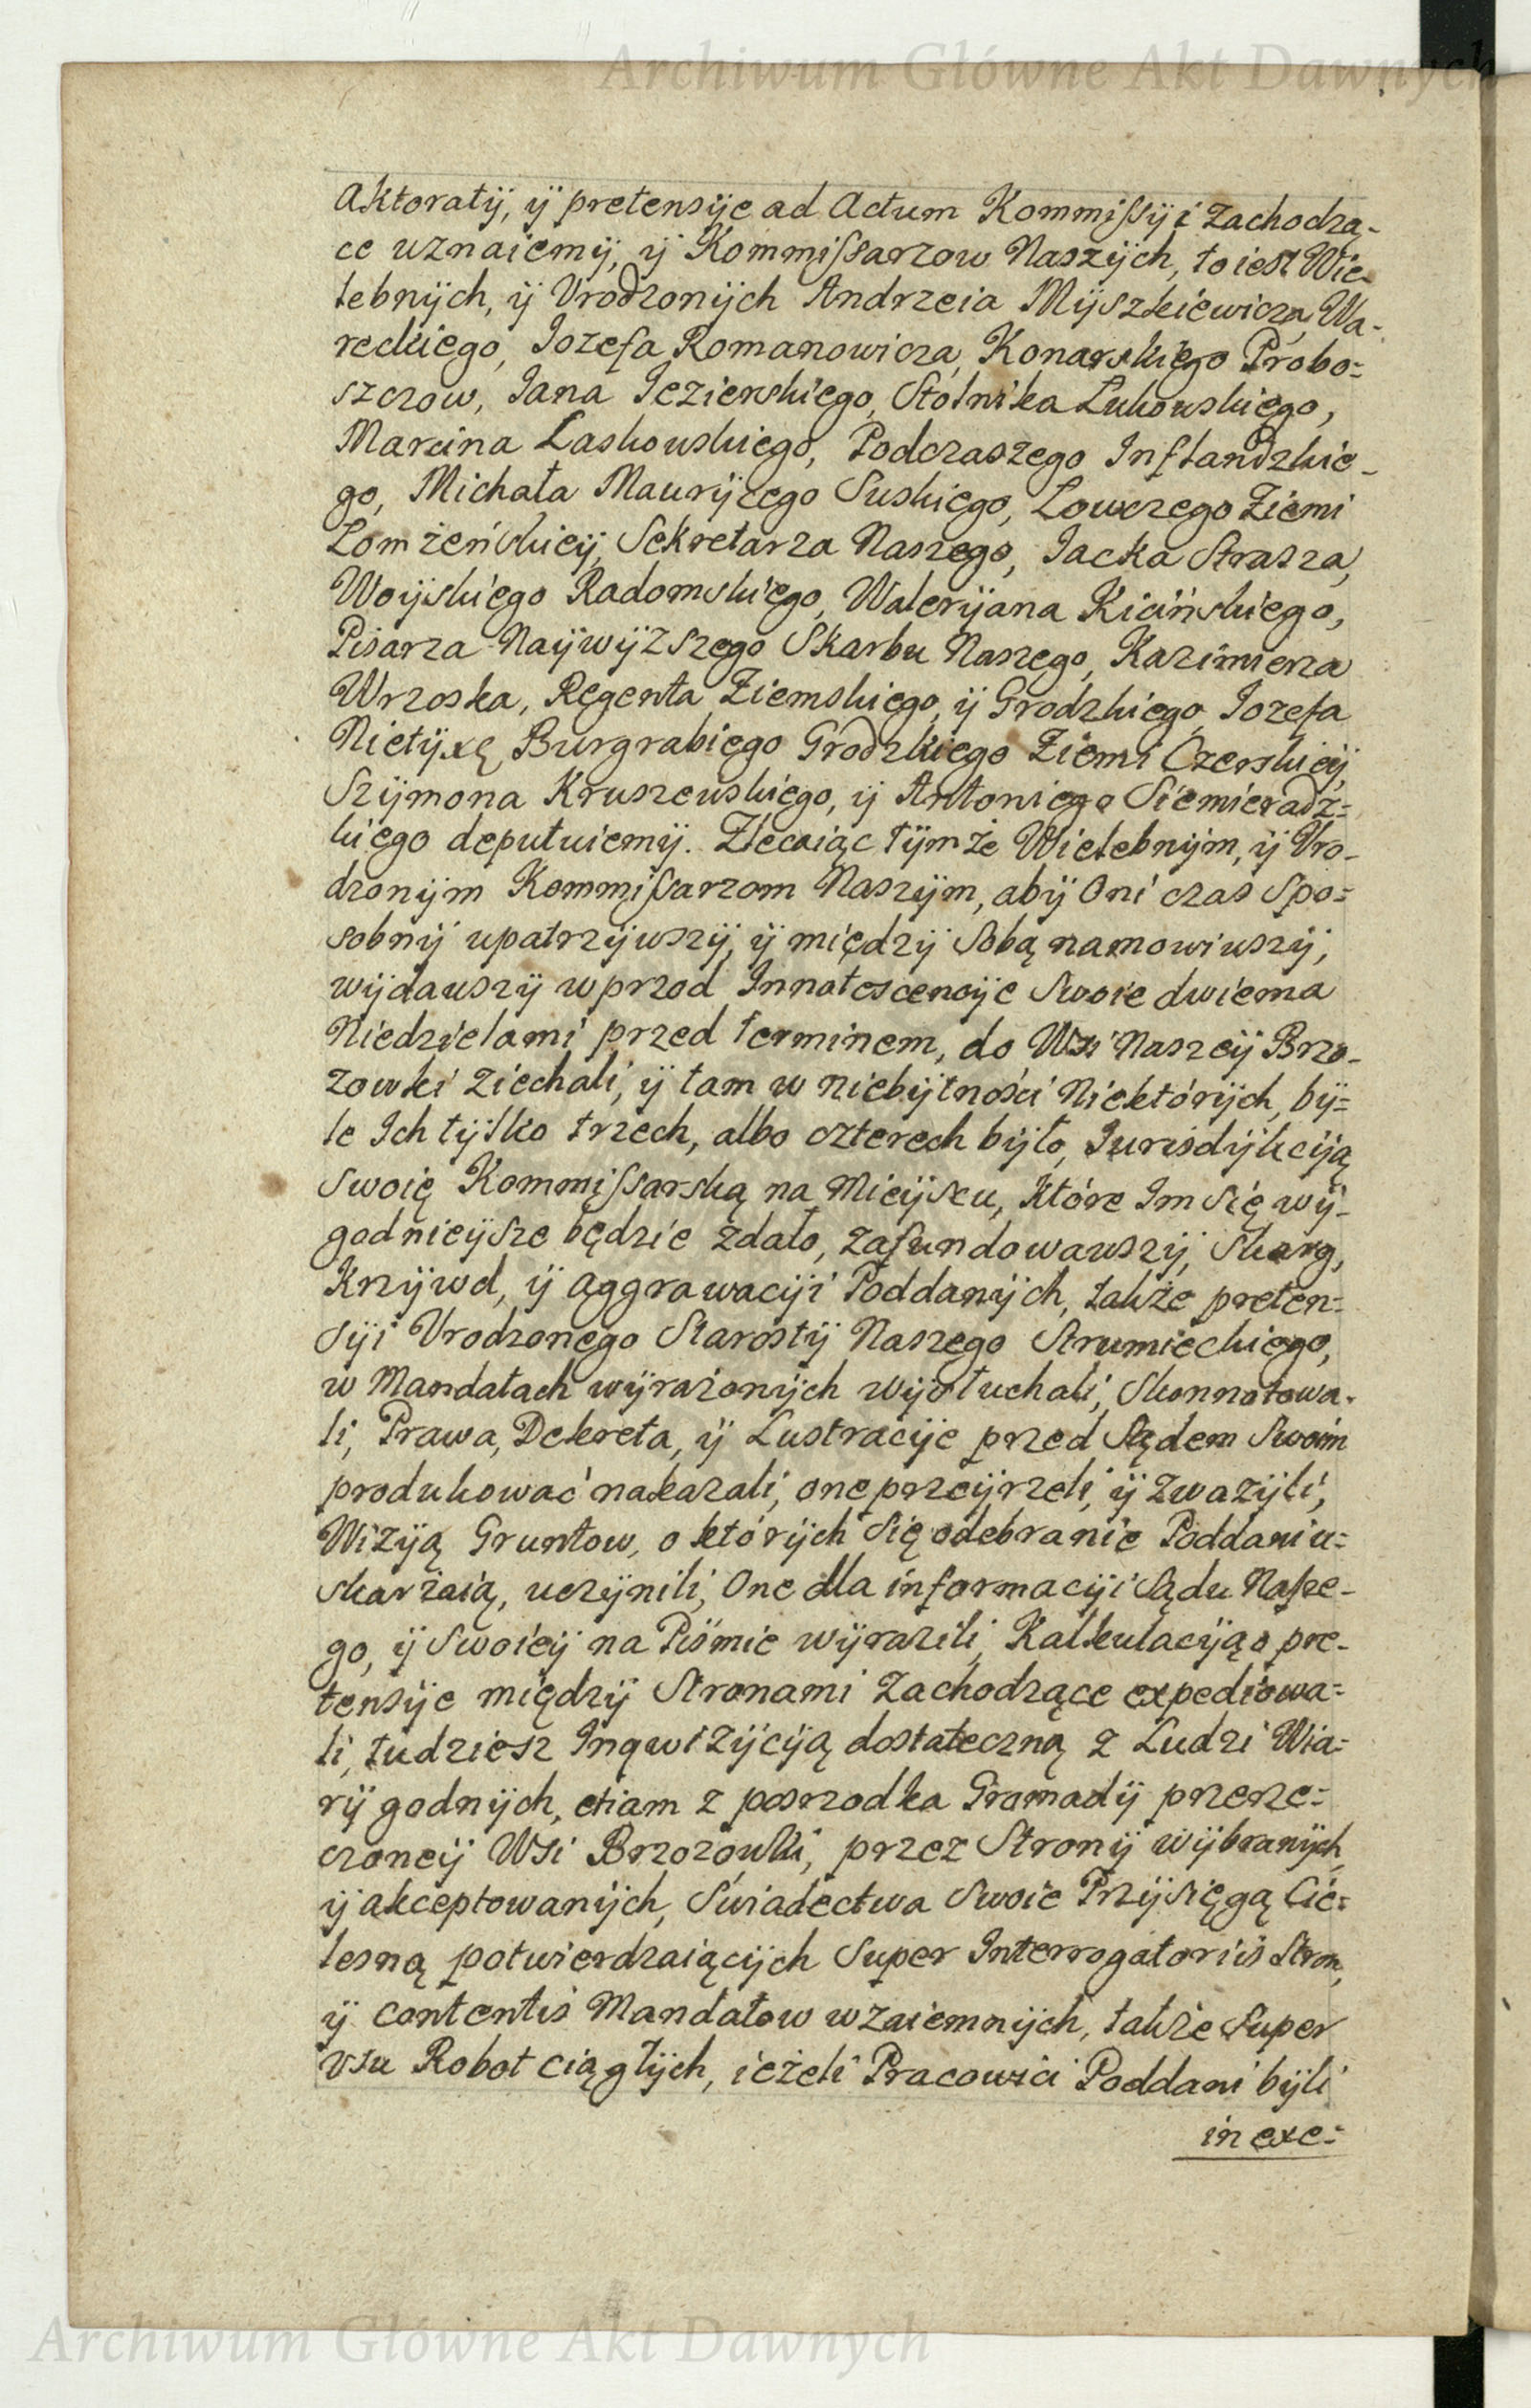 Archiwum Główne Akt Dawnych
Aktoratÿ, ÿ pretensÿe ad Actum Kommiſsÿi zachodzą-
ce uznaiemÿ, ÿ Kommiſsarzow Naszÿch, to iest Wie-
lebnÿch, ÿ Vrodzonÿch Andrzeia Mÿszkiewicza Wa-
reckiego, Iozefa Romanowicza, Konarskiego Probo=
szczow, Iana Iezierskiego, Stolnika Łukowskiego,
Marcina Laskowskiego, Podczaszego Inflandzkie-
go, Michała Maurÿcego Suskiego, Łowczego Ziemi
Łomżeńskieÿ, Sekretarza Naszego, Iacka Strasza,
Woÿskiego Radomskiego, Walerÿana Kicińskiego,
Pisarza Naÿwÿzszego Skarbu Naszego, Kazimierza
Wrzoska, Regenta Ziemskiego, ÿ Grodzkiego, Iozefa
Nietÿxę Burgrabiego Grodzkiego Ziemi Czerskieÿ,
Szÿmona Kruszewskiego, ÿ Antoniego Siemieradz=
kiego deputuiemÿ. Zlecaiąc tÿmże Wielebnÿm, ÿ Vro-
dzonÿm Kommiſsarzom Naszÿm, abÿ Oni czas Spo=
sobnÿ upatrzÿwszÿ, ÿ międzÿ Sobą namowiwszÿ,
wÿdawszÿ wprzod Innotescencÿe Swoie dwiema
Niedzielami przed terminem, do Wsi Naszeÿ Brzo-
zowki ziechali, ÿ tam w niebÿtności Niektórÿch, bÿ=
le Ich tÿlko trzech, albo czterech bÿło, Iurisdÿkcÿą
Swoię Kommiſsarską na Mieÿscu, które Im się wÿ-
godnieÿsze będzie zdało, zafundowawszÿ, Skarg,
Krzÿwd, ÿ aggrawacÿi Poddanÿch, także preten=
sÿi Vrodzonego Starostÿ Naszego Strumieckiego,
w Mandatach wÿrażonÿch wÿsłuchali, Skonnotowa-
li, Prawa, Dekreta, ÿ Lustracÿe przed Sądem Swoim
produkować nakazali, one przeÿrzeli, ÿ zwazÿli,
Wizÿą Gruntow, o którÿch się odebranie Poddani u=
skarżaią, uczÿnili, One dla informacÿi Sądu Naſze-
go, ÿ Swoieÿ na Piśmie wÿrazili, Kalkulacÿą o pre-
tensÿe międzÿ Stronami zachodzące expediowa=
li, tudziesz Inqwizÿcÿą dostateczną z Ludzi Wia=
rÿ godnÿch, etiam z posrzodka Gromadÿ przerze=
czoneÿ Wsi Brzozowki, przez Stronÿ wÿbranÿch,
ÿ akceptowanÿch, Swiadectwa Swoie Przÿsięgą Cie=
lesną potwierdzaiącÿch Super Interrogatoriis Stron,
ÿ contentis Mandatow wzaiemnÿch, także Super
vsu Robot ciągłÿch, ieżeli Pracowici Poddani bÿli
in exe=
Archiwum Główne Akt Dawnych